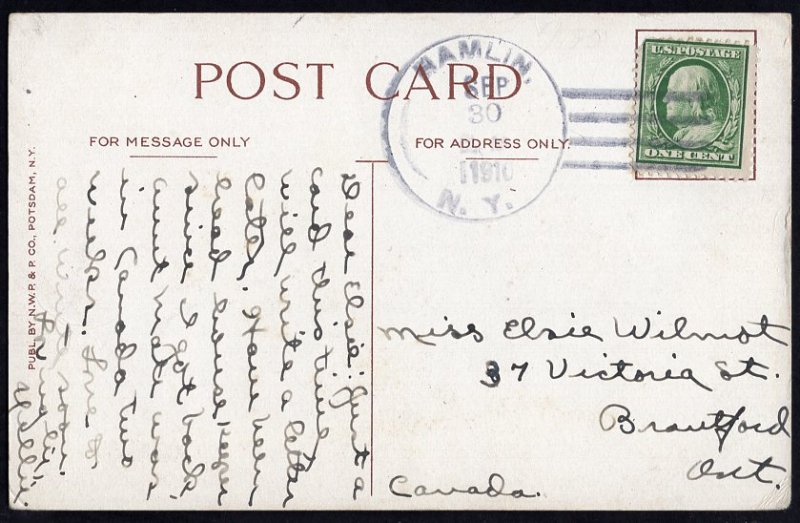 POST CARD
HAMLIN,
SEP
30
1910
N. Y.
U.S. POSTAGE
ONE CENT
FOR MESSAGE ONLY
FOR ADDRESS ONLY.
PUBL. BY N.W.P. & P. CO., POTSDAM, N.Y.
Dear Elsie: Just a
card this time
will write a letter
later. Have been
head house keeper
since I got back.
aunt Mate was
in Canada two
weeks. Love to
all. Write soon.
Lovingly.
Nellie.
Miss Elsie Wilmot
37 Victoria St.
Brantford
Ont.
Canada.